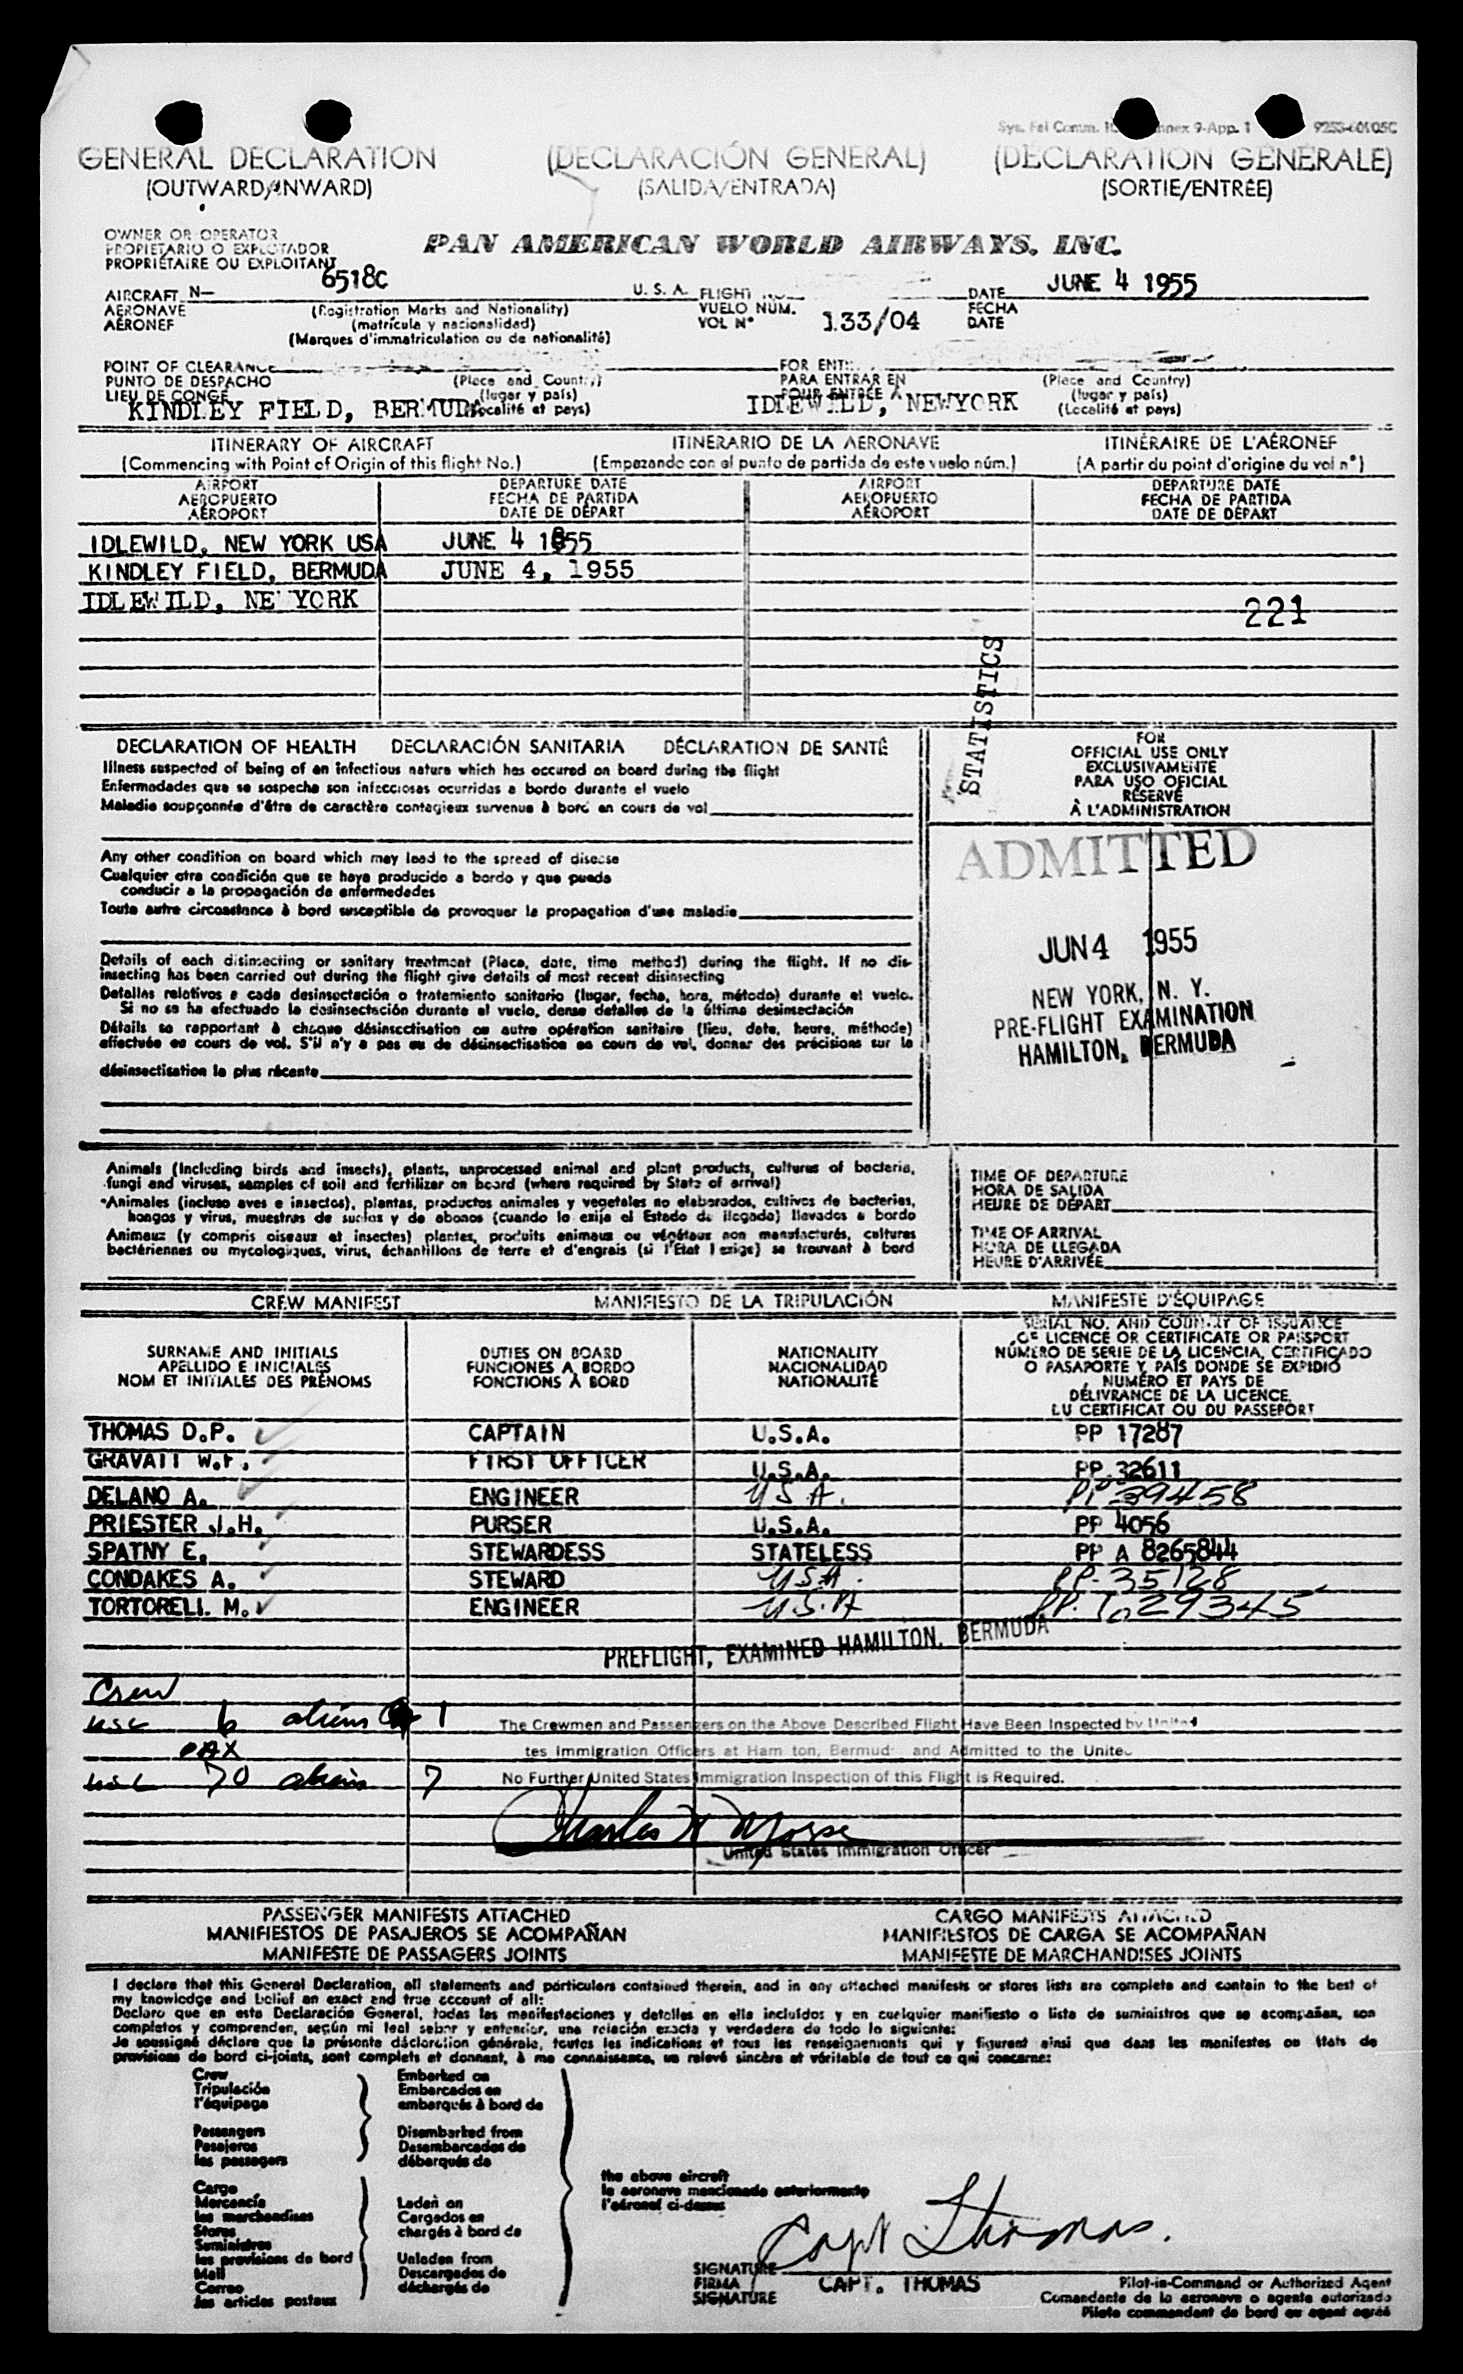 Sys. Fel Comm. nnex 9-App. 1 9253-60105C
GENERAL DECLARATION (DECLARACIÓN GENERAL) (DECLARATION GÉNERALE)
(OUTWARD/INWARD) (SALIDA/ENTRADA) (SORTIE/ENTRÉE)
OWNER OR OPERATOR
PROPIETARIO O EXPLOTADOR
PROPRIÉTAIRE OU EXPLOITANT
PAN AMERICAN WORLD AIRWAYS, INC.
AIRCRAFT N— 6518C U. S. A.
AERONAVE (Registration Marks and Nationality)
AÉRONEF (matrícula y nacionalidad)
(Marques d'immatriculation ou de nationalité)
FLIGHT NO.
VUELO NÚM.
VOL N° 133/04
DATE JUNE 4 1955
FECHA
DATE
POINT OF CLEARANCE
PUNTO DE DESPACHO (Place and Country)
LIEU DE CONGÉ (lugar y país)
KINDLEY FIELD, BERMUDA (Localité et pays)
FOR ENTRY
PARA ENTRAR EN (Place and Country)
POUR ENTRÉE A (lugar y país)
IDLEWILD, NEWYORK (Localité et pays)
ITINERARY OF AIRCRAFT ITINERARIO DE LA AERONAVE ITINÉRAIRE DE L'AÉRONEF
(Commencing with Point of Origin of this flight No.) (Empezando con el punto de partida de este vuelo núm.) (A partir du point d'origine du vol n°)
AIRPORT DEPARTURE DATE AIRPORT DEPARTURE DATE
AEROPUERTO FECHA DE PARTIDA AEROPUERTO FECHA DE PARTIDA
AÉROPORT DATE DE DÉPART AÉROPORT DATE DE DÉPART
IDLEWILD, NEW YORK USA JUNE 4 1955
KINDLEY FIELD, BERMUDA JUNE 4, 1955
IDLEWILD, NE YORK
221
STATISTICS
DECLARATION OF HEALTH DECLARACIÓN SANITARIA DÉCLARATION DE SANTÉ
Illness suspected of being of an infectious nature which has occured on board during the flight
Enfermedades que se sospecha son infecciosas ocurridas a bordo durante el vuelo
Maladie soupçonnée d'être de caractère contagieux survenue à bord en cours de vol
Any other condition on board which may lead to the spread of disease
Cualquier otra condición que se haya producido a bordo y que pueda
conducir a la propagación de enfermedades
Toute autre circonstance à bord susceptible de provoquer la propagation d'une maladie
Details of each disinsecting or sanitary treatment (Place, date, time method) during the flight. If no dis-
insecting has been carried out during the flight give details of most recent disinsecting
Detalles relativos a cada desinsectación o tratamiento sanitario (lugar, fecha, hora, método) durante el vuelo.
Si no se ha efectuado la desinsectación durante el vuelo, dense detalles de la última desinsectación
Détails se rapportant à chaque désinsectisation ou autre opération sanitaire (lieu, date, heure, méthode)
effectuée en cours de vol. S'il n'y a pas eu de désinsectisation en cours de vol, donner des précisions sur la
désinsectisation la plus récente
FOR
OFFICIAL USE ONLY
EXCLUSIVAMENTE
PARA USO OFICIAL
RÉSERVÉ
À L'ADMINISTRATION
ADMITTED
JUN 4 1955
NEW YORK, N. Y.
PRE-FLIGHT EXAMINATION
HAMILTON, BERMUDA
Animals (Including birds and insects), plants, unprocessed animal and plant products, cultures of bacteria,
fungi and viruses, samples of soil and fertilizer on board (where required by State of arrival)
Animales (incluso aves e insectos), plantas, productos animales y vegetales no elaborados, cultivos de bacterias,
hongos y virus, muestras de suelos y de abonos (cuando lo exija el Estado de llegada) llevados a bordo
Animaux (y compris oiseaux et insectes) plantes, produits animaux ou végétaux non manufacturés, cultures
bactériennes ou mycologiques, virus, échantillons de terre et d'engrais (si l'Etat l exige) se trouvant à bord
TIME OF DEPARTURE
HORA DE SALIDA
HEURE DE DÉPART
TIME OF ARRIVAL
HORA DE LLEGADA
HEURE D'ARRIVÉE
CREW MANIFEST MANIFIESTO DE LA TRIPULACIÓN MANIFESTE D'ÉQUIPAGE
SURNAME AND INITIALS
APELLIDO E INICIALES
NOM ET INITIALES DES PRÉNOMS
DUTIES ON BOARD
FUNCIONES A BORDO
FONCTIONS À BORD
NATIONALITY
NACIONALIDAD
NATIONALITÉ
SERIAL NO. AND COUNTRY OF ISSUANCE
OF LICENCE OR CERTIFICATE OR PASSPORT
NÚMERO DE SERIE DE LA LICENCIA, CERTIFICADO
O PASAPORTE Y PAÍS DONDE SE EXPIDIÓ
NUMÉRO ET PAYS DE
DÉLIVRANCE DE LA LICENCE,
DU CERTIFICAT OU DU PASSEPORT
THOMAS D.P. CAPTAIN U.S.A. PP 17287
GRAVATT W.F. FIRST OFFICER U.S.A. PP 32611
DELANO A. ENGINEER U S A. PP 39458
PRIESTER J.H. PURSER U.S.A. PP 4056
SPATNY E. STEWARDESS STATELESS PP A 8265844
CONDAKES A. STEWARD U S A. PP. 35128
TORTORELL M. ENGINEER U.S.A PP. 1029345
PREFLIGHT, EXAMINED HAMILTON, BERMUDA
Crew
usc 6 aliens 1
The Crewmen and Passengers on the Above Described Flight Have Been Inspected by United
PAX
tes Immigration Officers at Ham ton, Bermud and Admitted to the Unite
usc 70 aliens 7
No Further United States Immigration Inspection of this Flight is Required.
Charles H Morse
United States Immigration Officer
PASSENGER MANIFESTS ATTACHED CARGO MANIFESTS ATTACHED
MANIFIESTOS DE PASAJEROS SE ACOMPAÑAN MANIFIESTOS DE CARGA SE ACOMPAÑAN
MANIFESTE DE PASSAGERS JOINTS MANIFESTE DE MARCHANDISES JOINTS
I declare that this General Declaration, all statements and particulars contained therein, and in any attached manifests or stores lists are complete and contain to the best of
my knowledge and belief an exact and true account of all:
Declaro que en esta Declaración General, todas las manifestaciones y detalles en ella incluídos y en cualquier manifiesto o lista de suministros que se acompañan, son
completos y comprenden, según mi leal saber y entender, una relación exacta y verdadera de todo lo siguiente:
Je soussigné déclare que la présente déclaration générale, toutes les indications et tous les renseignements qui y figurent ainsi que dans les manifestes ou états de
provisions de bord ci-joints, sont complets et donnent, à ma connaissance, un relevé sincère et véritable de tout ce qui concerne:
Crew
Tripulación
l'équipage
Passengers
Pasajeros
les passagers
Embarked on
Embarcados en
embarqués à bord de
Disembarked from
Desembarcados de
débarqués de
Cargo
Mercancía
les marchandises
Stores
Suministros
les provisions de bord
Mail
Correo
les articles postaux
Laden on
Cargados en
chargés à bord de
Unladen from
Descargados de
déchargés de
the above aircraft
la aeronave mencionada anteriormente
l'aéronef ci-dessus
Capt Thomas.
SIGNATURE
FIRMA
SIGNATURE
CAPT. THOMAS
Pilot-in-Command or Authorized Agent
Comandante de la aeronave o agente autorizado
Pilote commandant de bord ou agent agréé